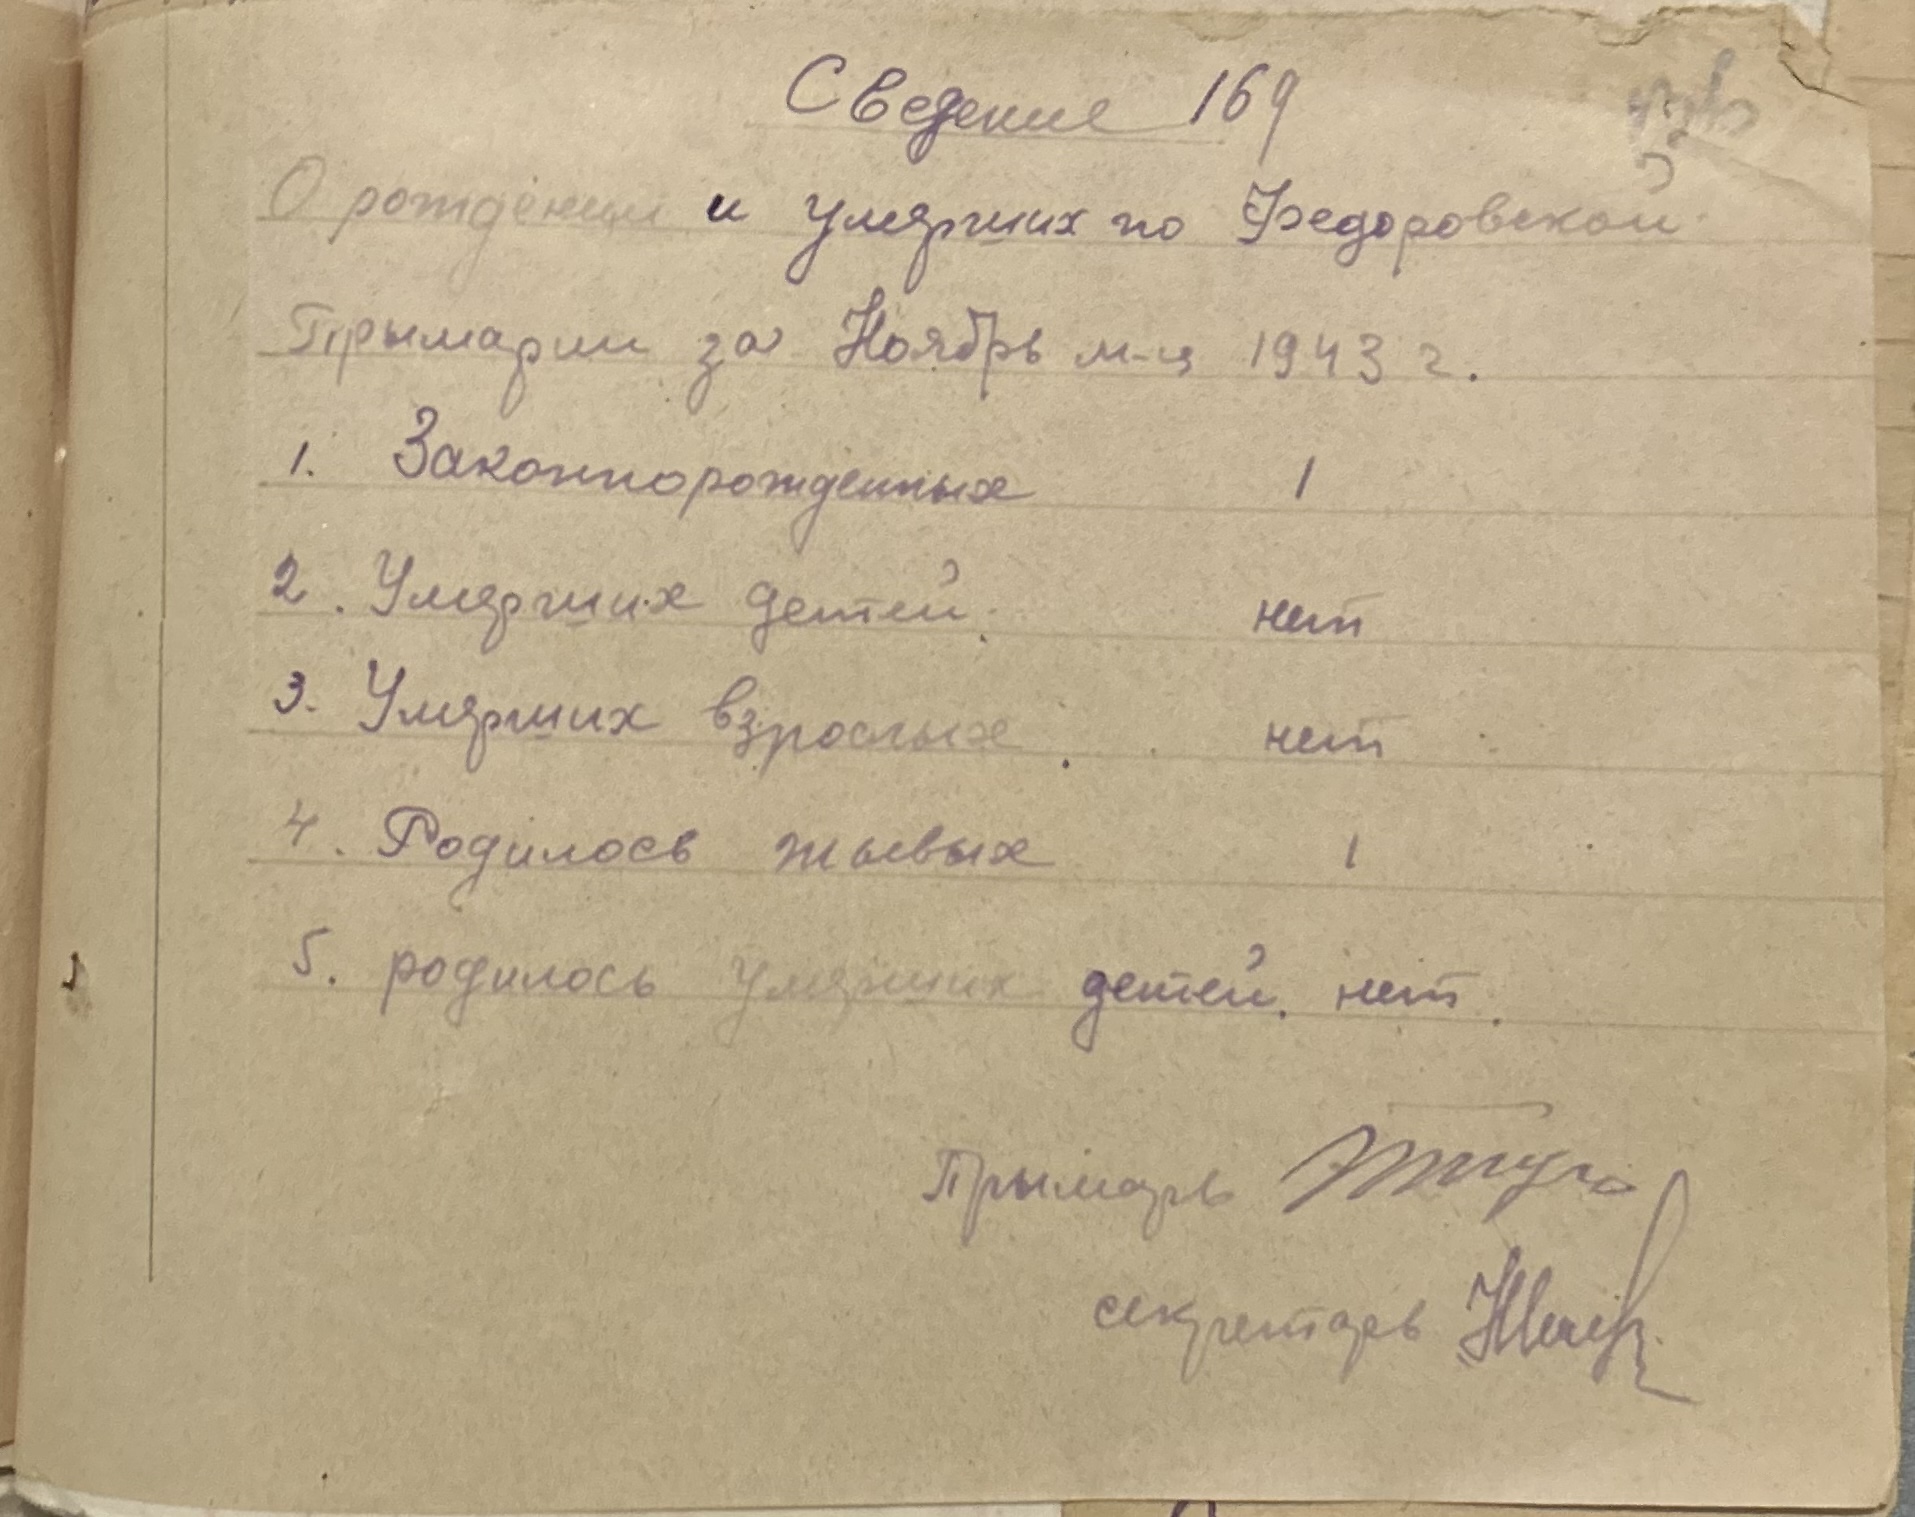 Сведение 169
О рождении и умерших по Федоровской
Прымарии за Ноябрь м-ц 1943 г.
1. Законнорожденных 1
2. Умерших детей. нет
3. Умерших взрослых. нет
4. Родилось жывых 1
5. родилось умерших детей. нет.
Прымарь
секретарь